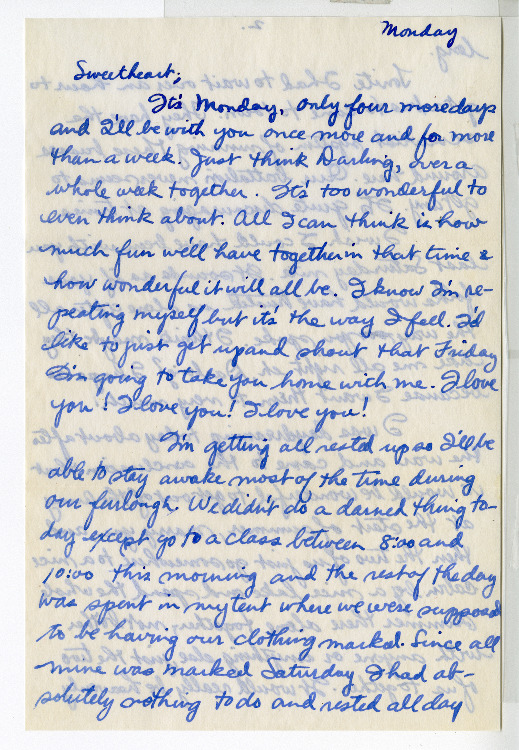 Monday
Sweetheart;
It's Monday, only four more days
and I'll be with you once more and for more
than a week. Just think Darling, over a
whole week together. It's too wonderful to
even think about. All I can think is how
much fun we'll have together in that time &
how wonderful it will all be. I know I'm re-
peating myself but it's the way I feel. I'd
like to just get up and shout that Friday
I'm going to take you home with me. I love
you! I love you! I love you!
I'm getting all rested up so I'll be
able to stay awake most of the time during
our furlough. We didn't do a darned thing to-
day except go to a class between 8:00 and
10:00 this morning and the rest of the day
was spent in my tent where we were supposed
to be having our clothing marked. Since all
mine was marked Saturday I had ab-
solutely nothing to do and rested all day